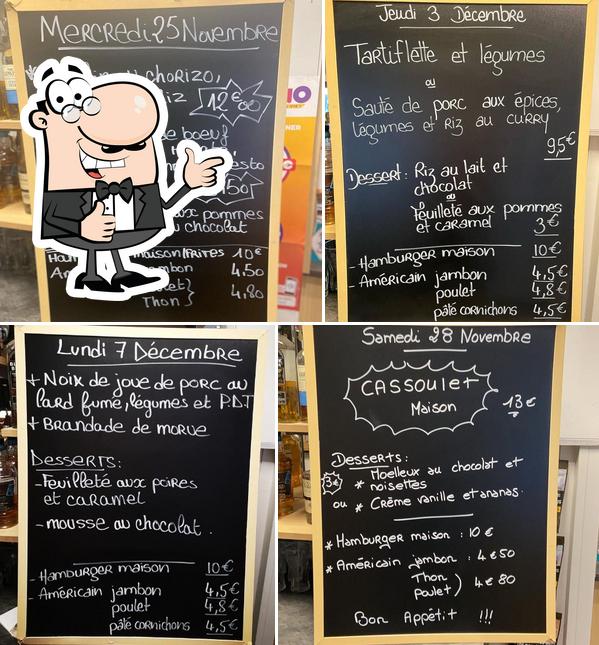 Mercredi 25 Novembre
chorizo,
riz 12€00
de boeuf
esto
50
aux pommes
chocolat
maison/frites 10€
jambon 4,50
Thon } 4,80
Jeudi 3 Décembre
Tartiflette et légumes
ou
Sauté de porc aux épices,
légumes et Riz au curry
9,5€
Dessert : Riz au lait et
chocolat
ou
feuilleté aux pommes
et caramel 3€
- Hamburger maison 10€
- Américain jambon 4,5€
poulet 4,8€
pâté cornichons 4,5€
Lundi 7 Décembre
+ Noix de joue de porc au
lard fumé, légumes et P.D.T
+ Brandade de morue
Desserts :
- Feuilleté aux poires
et caramel
- mousse au chocolat.
- Hamburger maison 10€
- Américain jambon 4,5€
poulet 4,8€
pâté cornichons 4,5€
Samedi 28 Novembre
CASSOULET
Maison 13€
Desserts :
3€ * Moelleux au chocolat et
noisettes
ou * Crème vanille et ananas.
* Hamburger maison : 10€
* Américain jambon : 4€50
Thon
poulet ) 4€80
Bon Appétit !!!